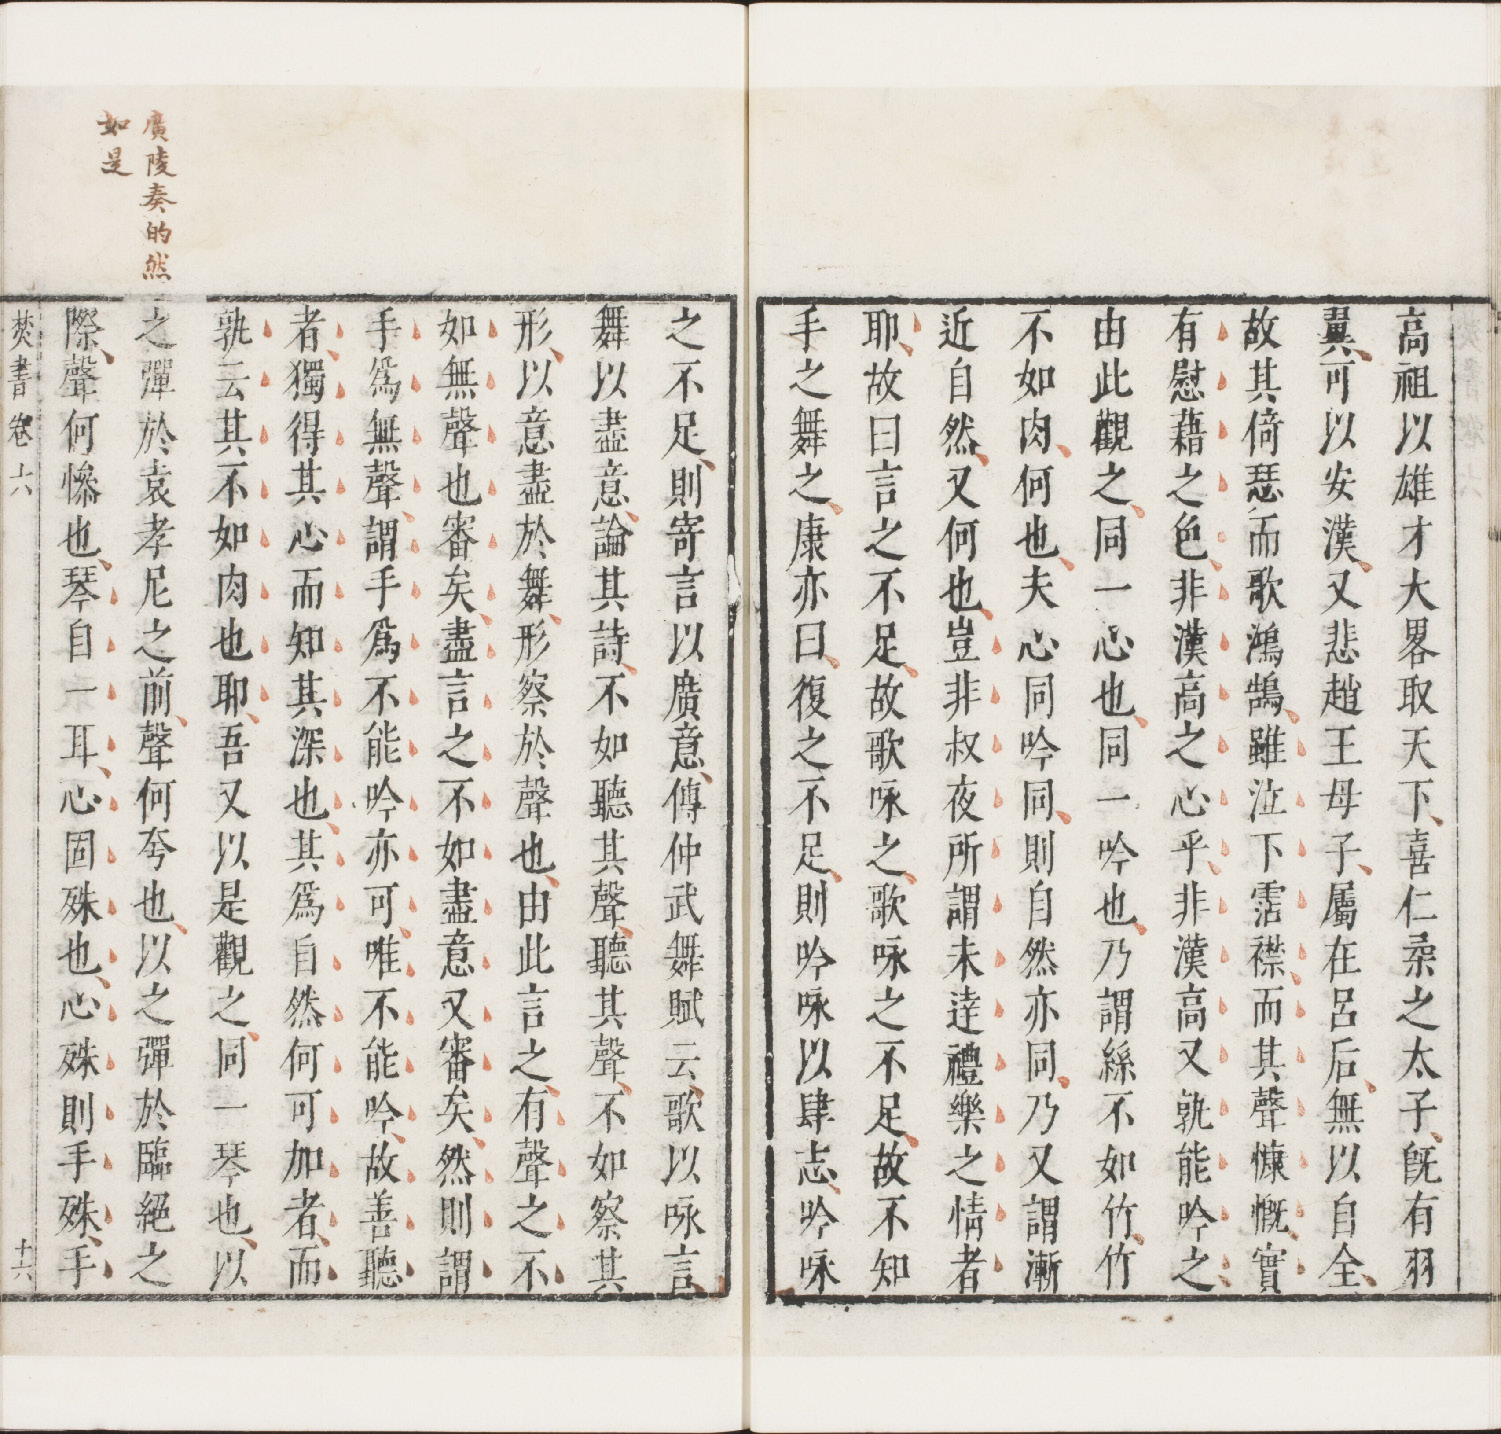 高祖以雄才大畧取天下喜仁柔之太子旣有羽
翼可以安漢又悲趙王母子屬在呂后無以自全
故其倚瑟而歌鴻鵠雖泣下霑襟而其聲慷慨實
有慰藉之色非漢高之心乎非漢高又孰能吟之
由此觀之同一心也同一吟也乃謂絲不如竹竹
不如肉何也夫心同吟同則自然亦同乃又謂漸
近自然又何也豈非叔夜所謂未達禮樂之情者
耶故曰言之不足故歌咏之歌咏之不足故不知
手之舞之康亦曰復之不足則吟咏以肆志吟咏
之不足則寄言以廣意傳仲武舞賦云歌以咏言
舞以盡意論其詩不如聽其聲聽其聲不如察其
形以意盡於舞形察於聲也由此言之有聲之不
如無聲也審矣盡言之不如盡意又審矣然則謂
手爲無聲謂手爲不能吟亦可唯不能吟故善聽
者獨得其心而知其深也其爲自然何可加者而
孰云其不如肉也耶吾又以是觀之同一琴也以
之彈於袁孝尼之前聲何夸也以之彈於臨絕之
際聲何慘也琴自一耳心固殊也心殊則手殊手
焚書卷六
十六
廣陵奏的然
如是